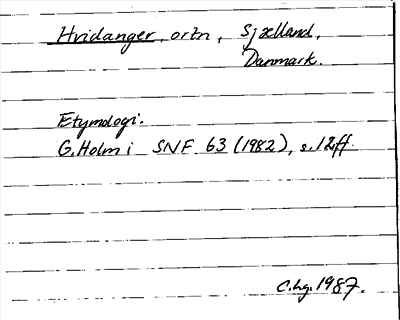 Hridanger, ortn, Sjælland,
Danmark.
Etymologi.
G. Holm i SNF 63 (1982), s. 12ff.
C.hg. 1987.